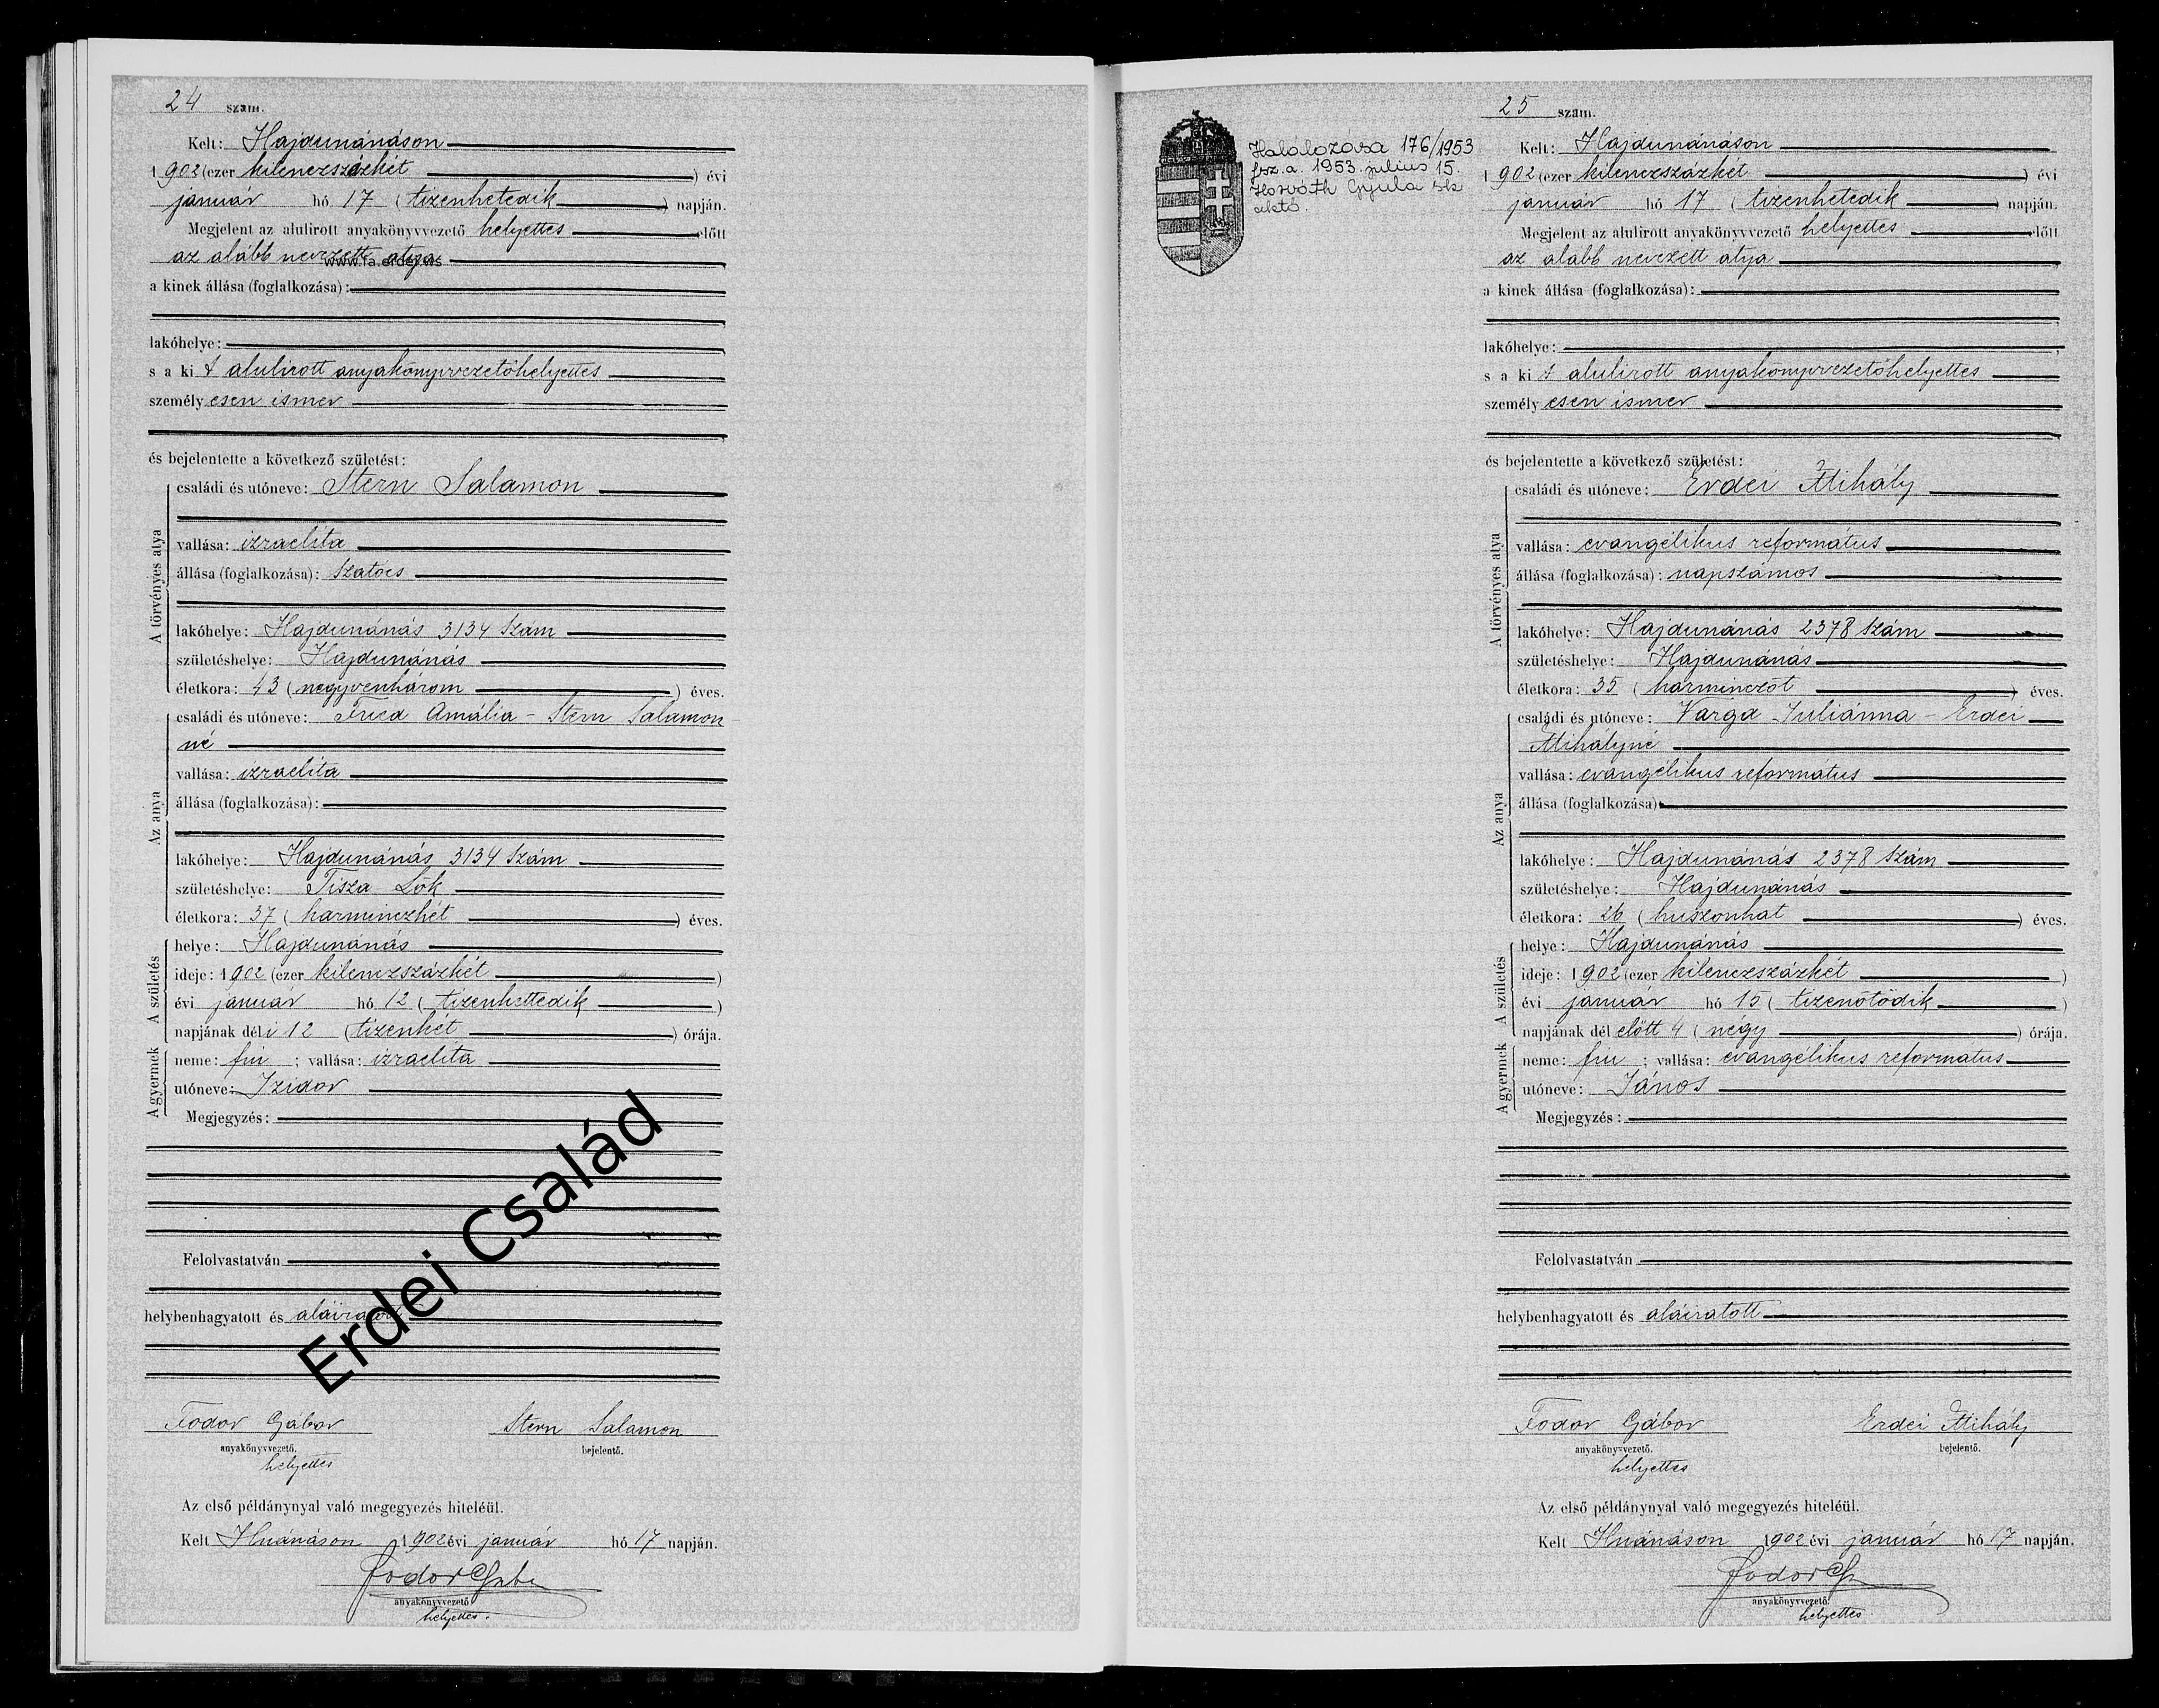 24 szám.
Kelt: Hajdunánáson
1902 (ezer kilenczszázkét) évi
január hó 17 (tizenhetedik) napján.
Megjelent az alulirott anyakönyvvezető helyettes előtt
az alább nevezett atya
www.fa.erdei.us
a kinek állása (foglalkozása):
lakóhelye:
s a kit alulirott anyakönyvvezetőhelyettes
személyesen ismer
és bejelentette a következő születést:
A törvényes atya
családi és utóneve: Stern Salamon
vallása: izraelita
állása (foglalkozása): szatócs
lakóhelye: Hajdunánás 3134 szám
születéshelye: Hajdunánás
életkora: 43 (negyvenhárom) éves.
Az anya
családi és utóneve: Fried Amália - Stern Salamon
né
vallása: izraelita
állása (foglalkozása):
lakóhelye: Hajdunánás 3134 szám
születéshelye: Tisza Lök
életkora: 37 (harminczhét) éves.
A születés
helye: Hajdunánás
ideje: 1902 (ezer kilenczszázkét)
évi január hó 12 (tizenkettedik)
napjának déli 12 (tizenkét) órája.
A gyermek
neme: fiu; vallása: izraelita
utóneve: Izidor
Megjegyzés:
Felolvastatván
helybenhagyatott és aláiratott
Erdei Család
Fodor Gábor Stern Salamon
anyakönyvvezető. bejelentő.
helyettes
Az első példánynyal való megegyezés hiteléül.
Kelt Hnánáson 1902 évi január hó 17 napján.
Fodor Gábor
anyakönyvvezető
helyettes.
Halálozása 176/1953
fsz. a. 1953. július 15.
Horváth Gyula sk
25 szám.
Kelt: Hajdunánáson
1902 (ezer kilenczszázkét) évi
január hó 17 (tizenhetedik) napján.
Megjelent az alulirott anyakönyvvezető helyettes előtt
az alább nevezett atya
a kinek állása (foglalkozása):
lakóhelye:
s a kit alulirott anyakönyvvezetőhelyettes
személyesen ismer
és bejelentette a következő születést:
A törvényes atya
családi és utóneve: Erdei Mihály
vallása: evangélikus református
állása (foglalkozása): napszámos
lakóhelye: Hajdunánás 2378 szám
születéshelye: Hajdunánás
életkora: 35 (harminczöt) éves.
Az anya
családi és utóneve: Varga Juliánna - Erdei
Mihályné
vallása: evangélikus református
állása (foglalkozása):
lakóhelye: Hajdunánás 2378 szám
születéshelye: Hajdunánás
életkora: 26 (huszonhat) éves.
A születés
helye: Hajdunánás
ideje: 1902 (ezer kilenczszázkét)
évi január hó 15 (tizenötödik)
napjának dél előtt 4 (négy) órája.
A gyermek
neme: fiu; vallása: evangélikus református
utóneve: János
Megjegyzés:
Felolvastatván
helybenhagyatott és aláiratott
Fodor Gábor Erdei Mihály
anyakönyvvezető. bejelentő.
helyettes
Az első példánynyal való megegyezés hiteléül.
Kelt Hnánáson 1902 évi január hó 17 napján.
Fodor G
anyakönyvvezető.
helyettes